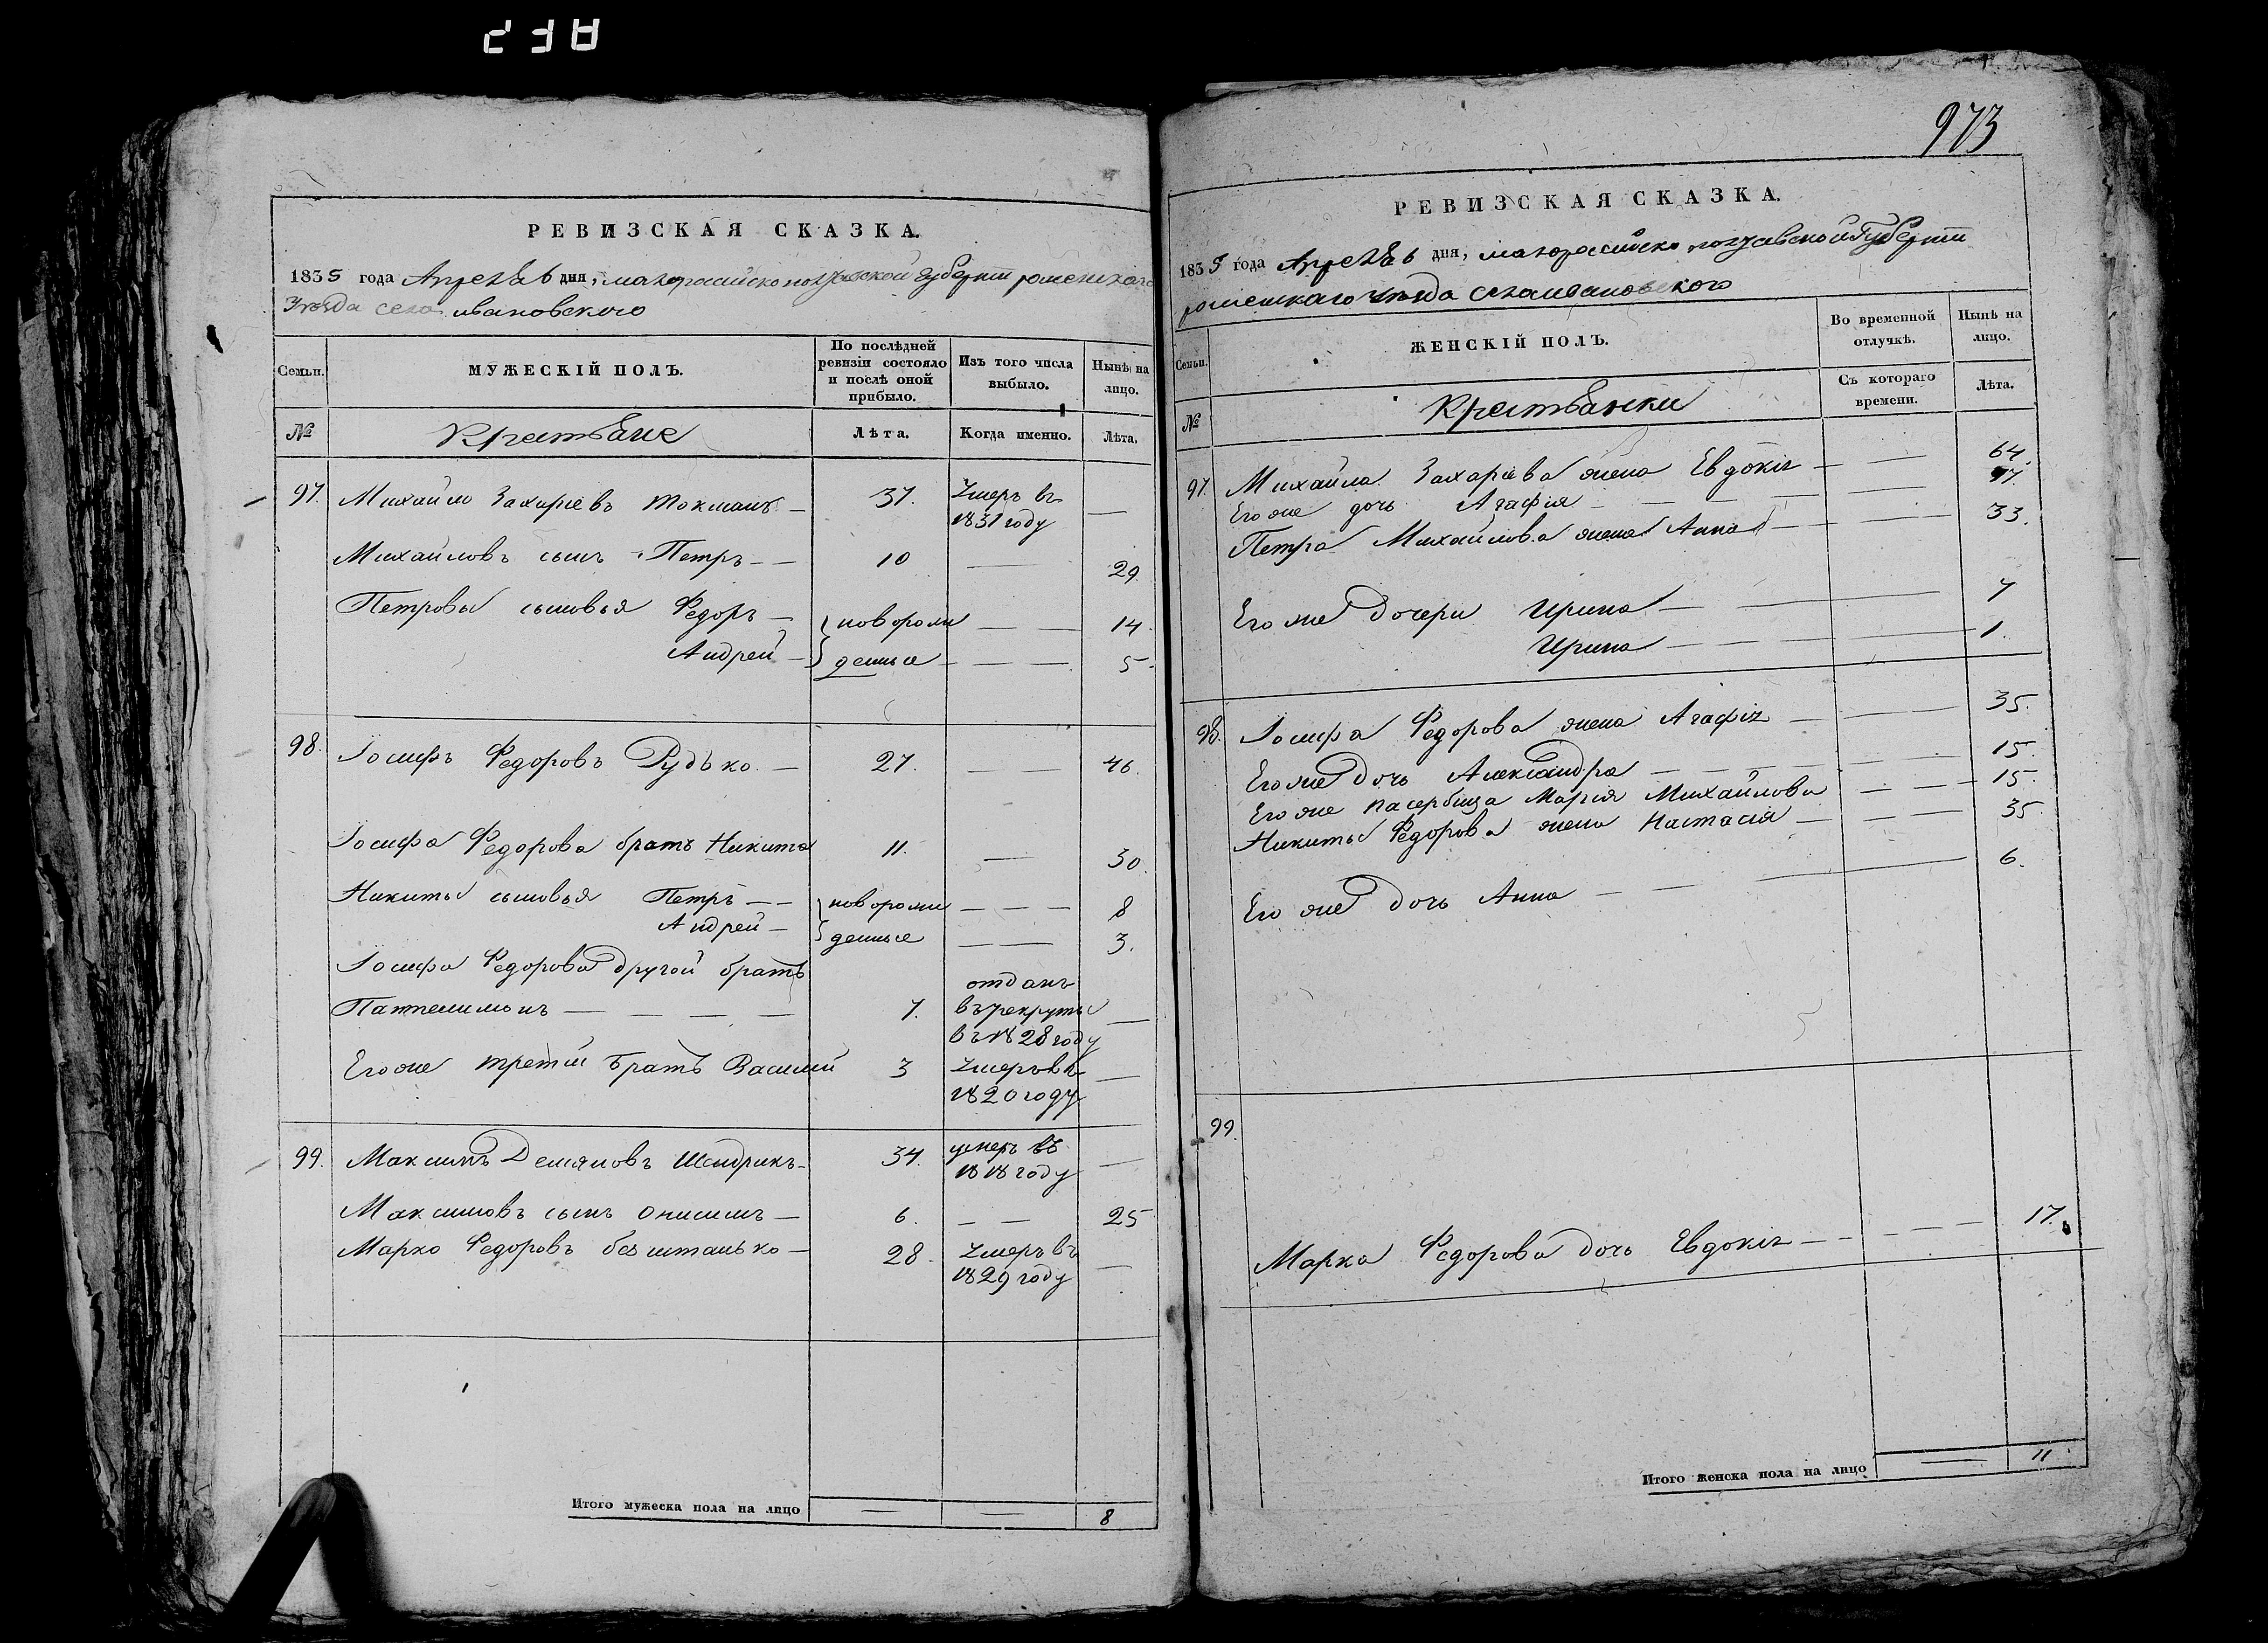 238
РЕВИЗСКАЯ СКАЗКА.
1835 года Апреля 6 дня, малоросийско полтавской губерти роменскаго
Уезда села ивановского
Семьи.
МУЖЕСКІЙ ПОЛЪ.
По послѣдней ревизіи состояло и послѣ оной прибыло.
Изъ того числа выбыло.
Нынѣ на лицо.
№
Крестьяне
Лѣта.
Когда именно.
Лѣта.
97. Михайло Захаріевъ Токмань — 37. Умеръ въ 1831 году —
Михайловъ сынъ Петръ — — 10 — 29.
Петровы сыновья Федоръ — новорож — — 14.
Андрей — денные — — — 5.
98. Іосифъ Федоровъ Рудько — 27. — — 46.
Іосифа Федорова братъ Никита 11. — 30.
Никиты сыновья Петръ — — новорож — — — 8
Андрей — денные — — 3.
Іосифа Федорова другой братъ
Пантелимонъ — — — — 7. отданъ въ рекруты въ 1828 году —
Его же третій братъ Василий 3 Умеръ въ 1820 году —
99. Максимъ Демяновъ Шендрикъ — 34. умеръ въ 1818 году —
Максимовъ сынъ Онисимъ — 6. — — 25
Марко Федоровъ безштанько — 28. Умеръ въ 1829 году —
Итого мужеска пола на лицо — — 8
973
РЕВИЗСКАЯ СКАЗКА.
1835 года Апреля 6 дня, малоросийско полтавской Губерти
роменскаго уезда села ивановского
Семьи.
ЖЕНСКІЙ ПОЛЪ.
Во временной отлучкѣ.
Нынѣ на лицо.
№
Крестьянки
Съ котораго времени.
Лѣта.
97. Михайла Захаріева жена Евдокія — — 64.
Его же дочь Агафія — — — 17.
Петра Михайлова жена Анна — — 33.
Его же дочери Ирина — — 7
Ирина — — — 1.
98. Іосифа Федорова жена Агафія — — 35.
Его же дочь Александра — — — 15.
Его же пасербица Марія Михайлова — — 15.
Никиты Федорова жена Настасія — — — 35
Его же дочь Анна — — — 6.
99.
Марка Федорова дочь Евдокія — — — — 17.
Итого женска пола на лицо — 11